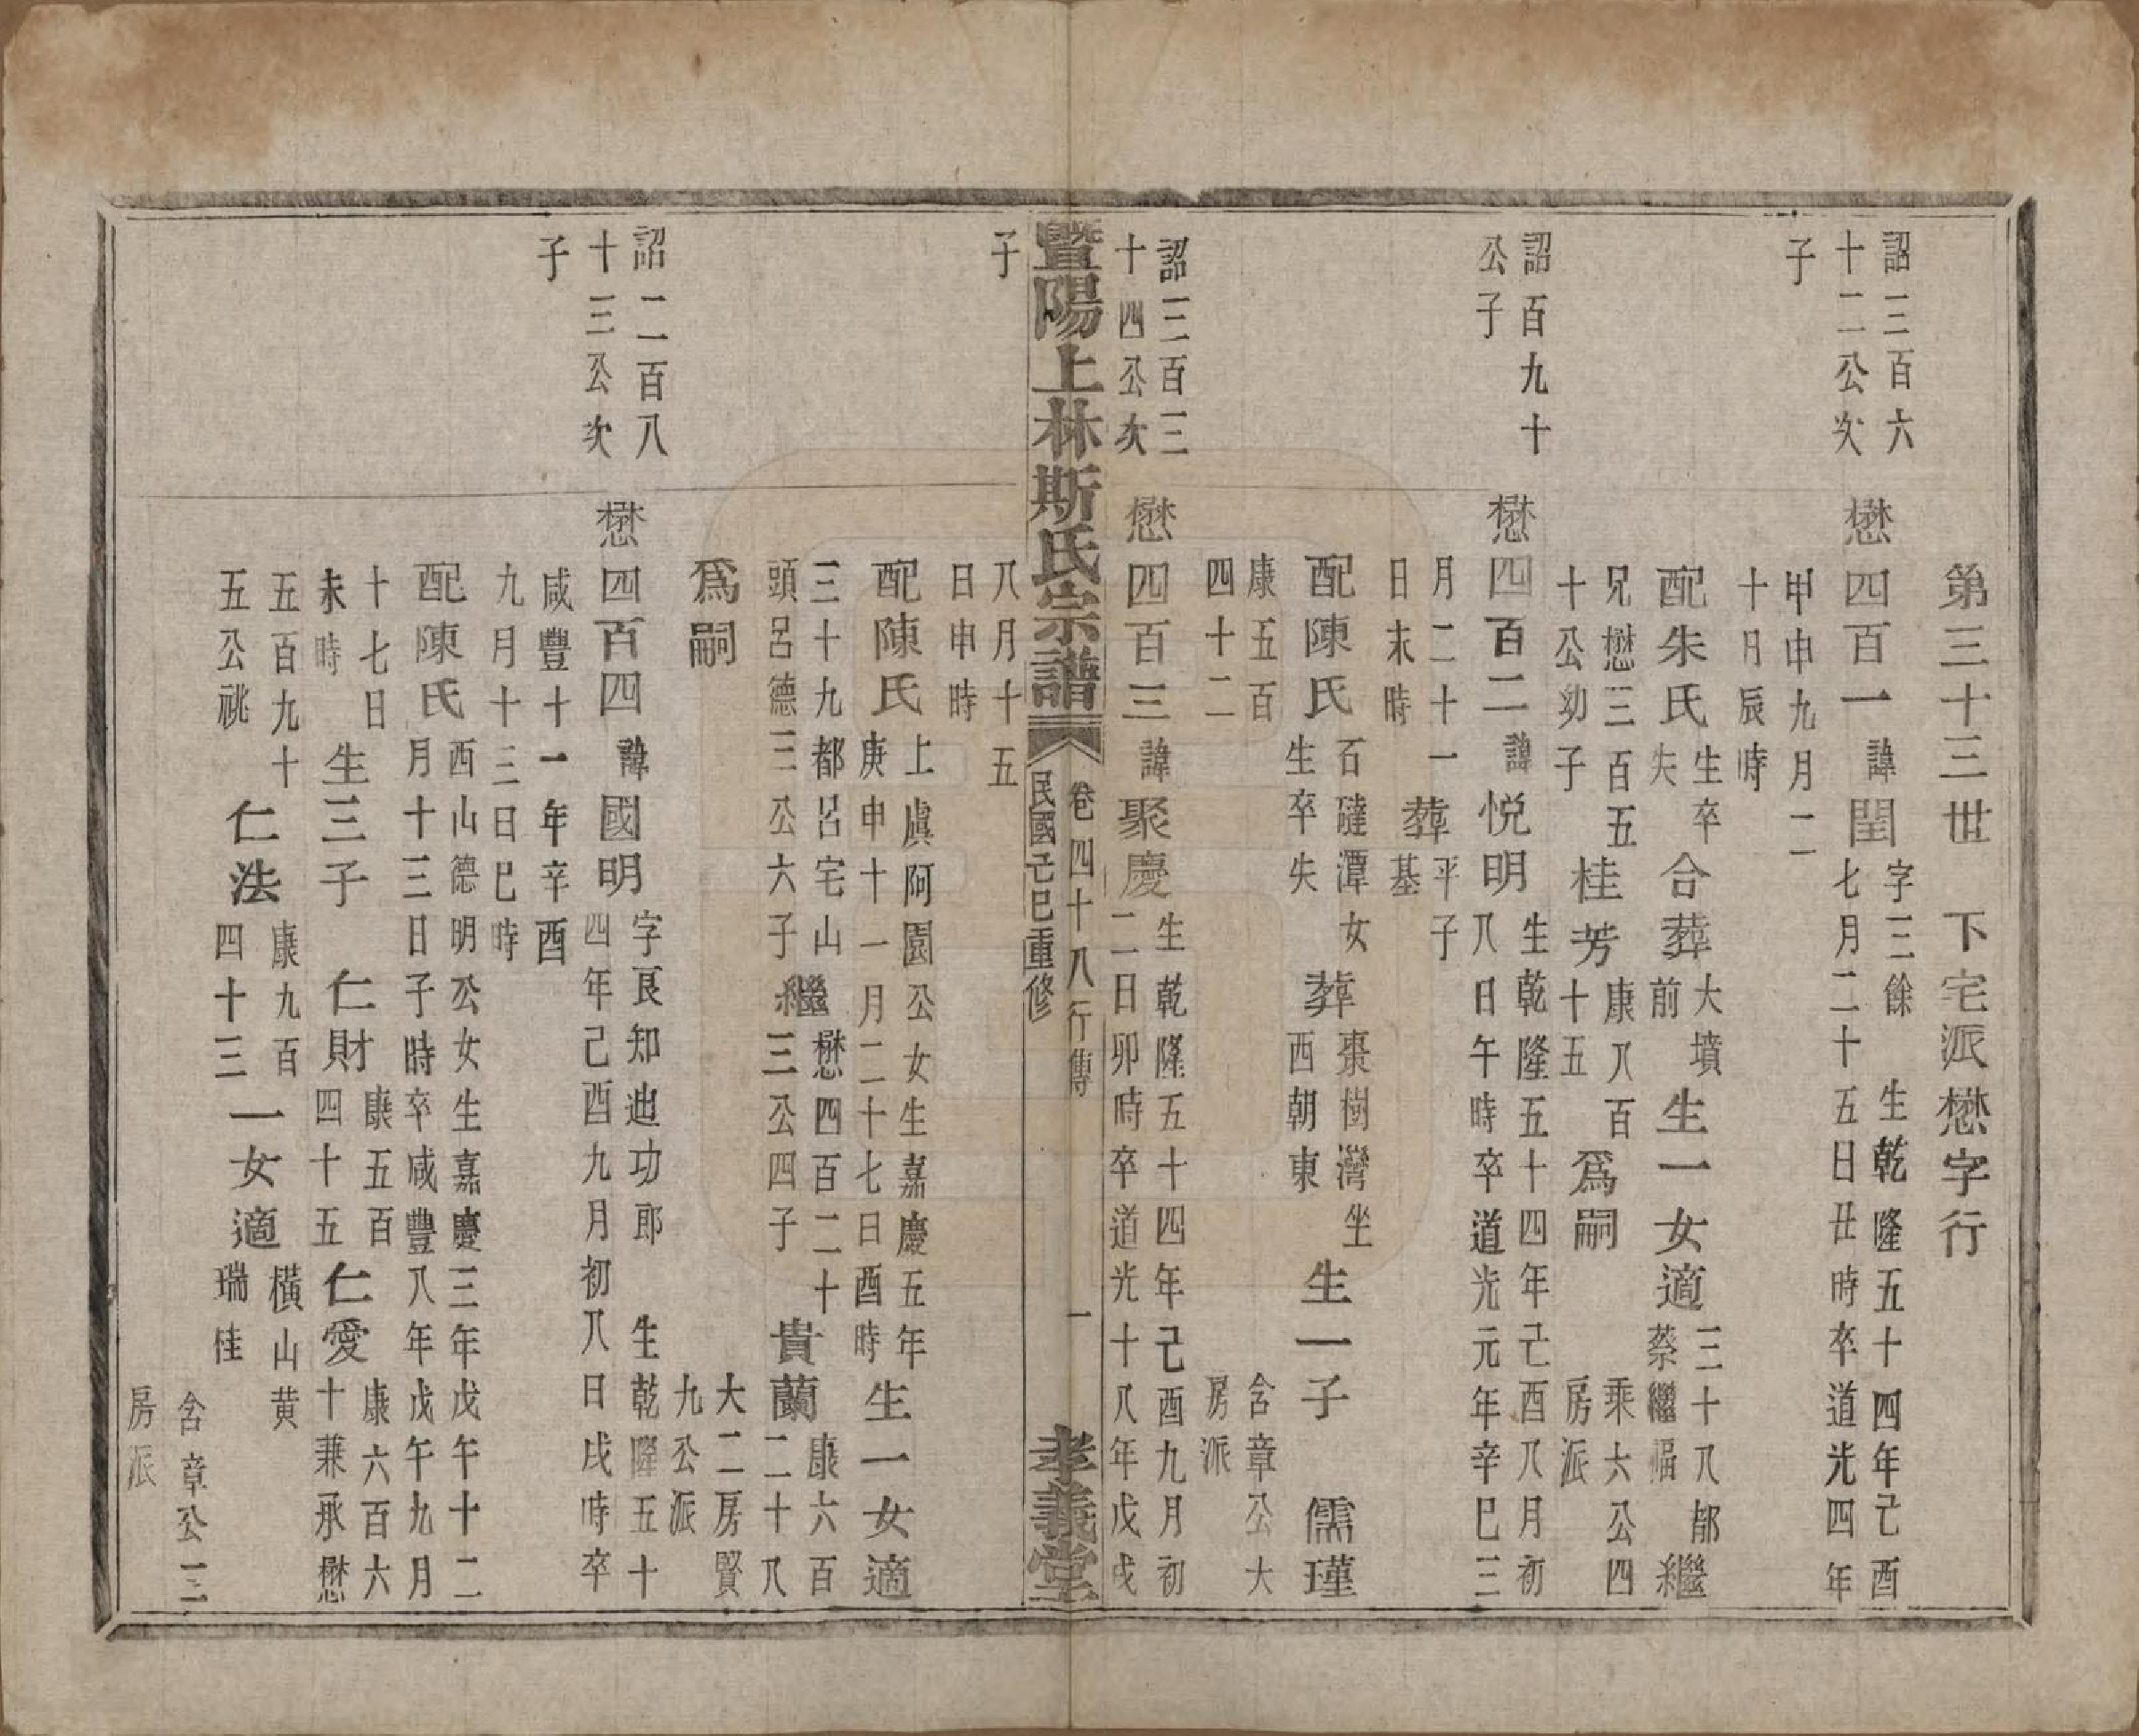 第三十三世　下宅派懋字行
詔三百六
十二公次
子
懋四百一諱閏字三餘　生乾隆五十四年己酉
七月二十五日丑時卒道光四年
甲申九月二
十日辰時
配朱氏生卒
失
合葬大墳
前
生一女適三十八都
蔡繼福
繼
兄懋三百五
十公幼子
桂芳康八百
十五
爲嗣
乘六公四
房派
詔百九十
公子
懋四百二諱悅明生乾隆五十四年己酉八月初
八日午時卒道光元年辛巳三
月二十一
日未時
葬平子
基
配陳氏石䃮潭女
生卒失
葬棗樹灣坐
西朝東
生一子　儒瑾
康五百
四十二
含章公大
房派
詔三百三
十四公次
子
懋四百三諱聚慶生乾隆五十四年己酉九月初
二日卯時卒道光十八年戊戌
暨陽上林斯氏宗譜
卷四十八行傳　一
民國己巳重修
孝義堂
八月十五
日申時
配陳氏上虞阿園公女生嘉慶五年
庚申十一月二十七日酉時
生一女適
三十九都呂宅山
頭呂德三公六子
繼懋四百二十
三公四子
貴蘭康六百
二十八
爲嗣
大二房賢
九公派
詔二百八
十三公次
子
懋四百四諱國明字良知迪功郎　生乾隆五十
四年己酉九月初八日戌時卒
咸豐十一年辛酉
九月十三日巳時
配陳氏西山德明公女生嘉慶三年戊午十二
月十三日子時卒咸豐八年戊午九月
十七日
未時
生三子　仁財康五百
四十五
仁愛康六百六
十兼承懋
五百九十
五公祧
仁法康九百
四十三
一女適橫山黄
瑞桂
含章公三
房派